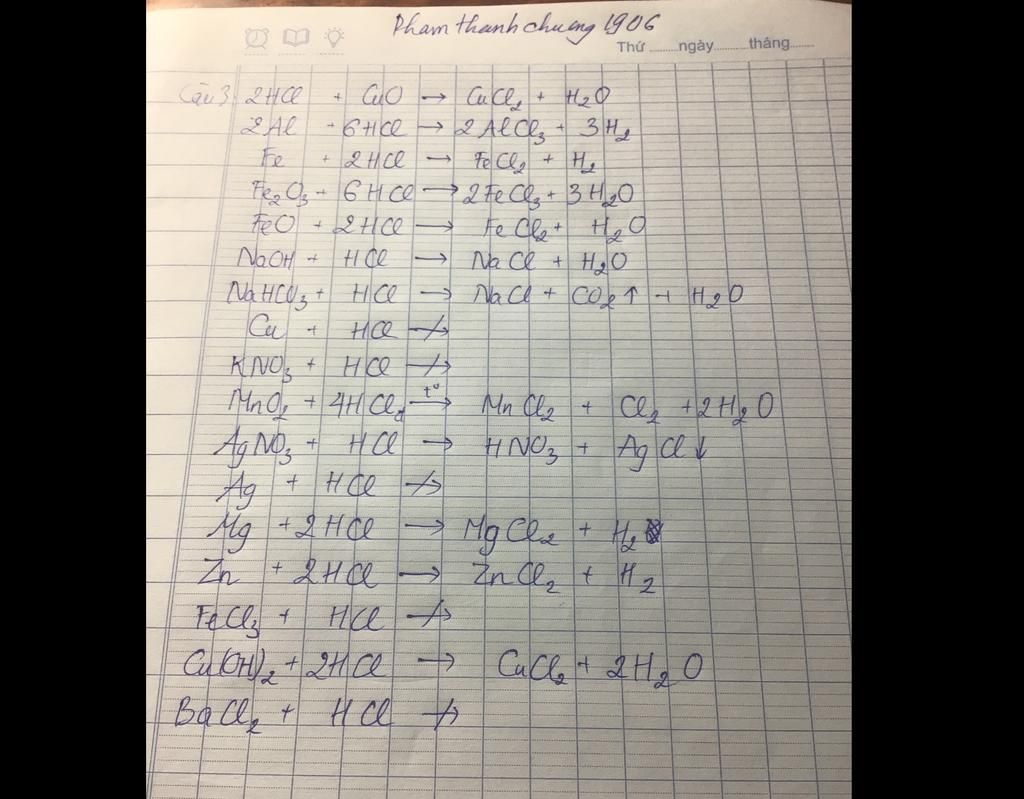 Pham thanh chuong 1906
Thứ ........ngày........tháng........
Câu 3 2HCl + CuO → CuCl₂ + H₂O
2Al + 6HCl → 2AlCl₃ + 3H₂
Fe + 2HCl → FeCl₂ + H₂
Fe₂O₃ + 6HCl → 2FeCl₃ + 3H₂O
FeO + 2HCl → FeCl₂ + H₂O
NaOH + HCl → NaCl + H₂O
NaHCO₃ + HCl → NaCl + CO₂↑ + H₂O
Cu + HCl ↛
KNO₃ + HCl ↛
MnO₂ + 4HClđ t° → MnCl₂ + Cl₂ + 2H₂O
AgNO₃ + HCl → HNO₃ + AgCl↓
Ag + HCl ↛
Mg + 2HCl → MgCl₂ + H₂
Zn + 2HCl → ZnCl₂ + H₂
FeCl₃ + HCl ↛
Cu(OH)₂ + 2HCl → CuCl₂ + 2H₂O
BaCl₂ + HCl ↛